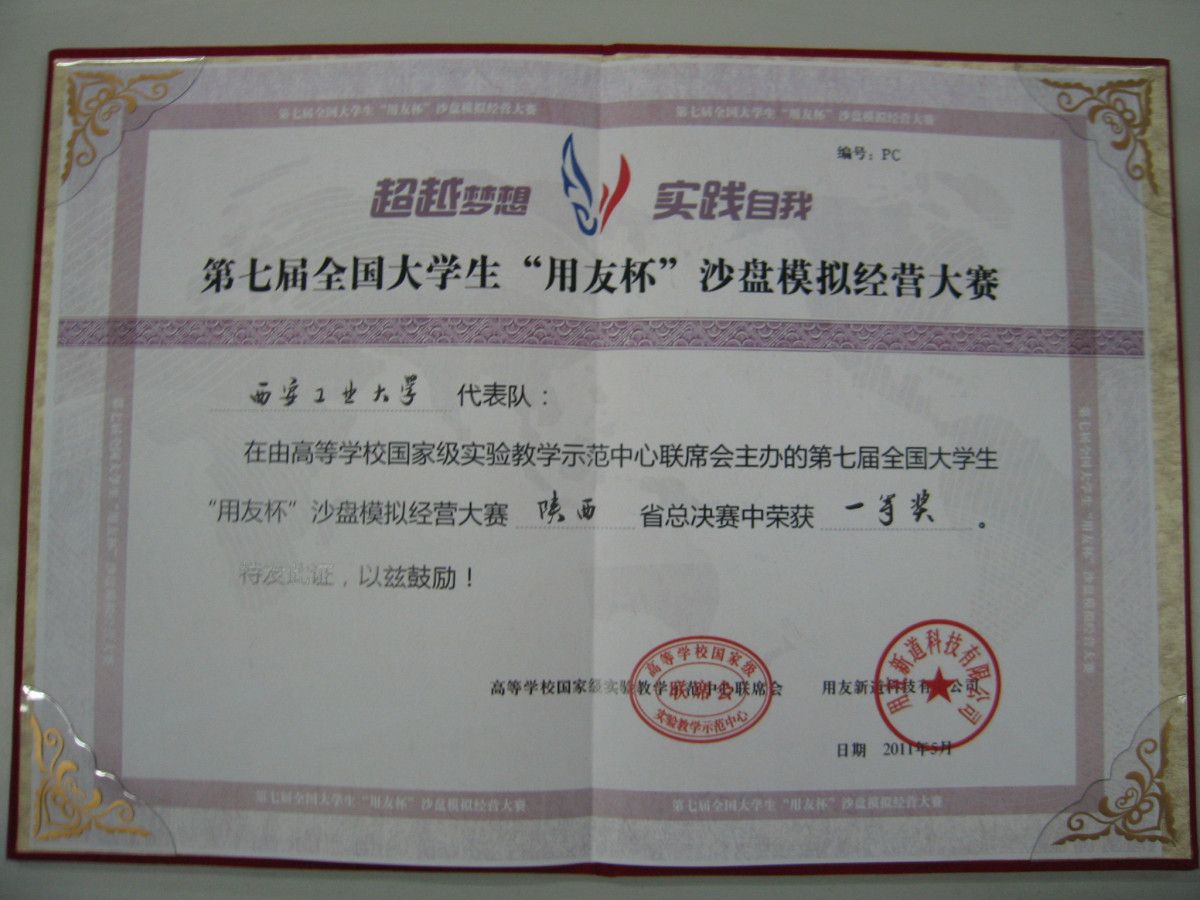 第七届全国大学生“用友杯”沙盘模拟经营大赛 第七届全国大学生“用友杯”沙盘模拟经营大赛
编号：PC
超越梦想 实践自我
第七届全国大学生“用友杯”沙盘模拟经营大赛
西安工业大学 代表队：
在由高等学校国家级实验教学示范中心联席会主办的第七届全国大学生
“用友杯”沙盘模拟经营大赛 陕西 省总决赛中荣获 一等奖 。
特发此证，以兹鼓励！
高等学校国家级实验教学示范中心联席会 用友新道科技有限公司
高等学校国家级
联席会
实验教学示范中心
用友新道科技有限公司
日期 2011年5月
第七届全国大学生“用友杯”沙盘模拟经营大赛 第七届全国大学生“用友杯”沙盘模拟经营大赛
第七届全国大学生“用友杯”沙盘模拟经营大赛
第七届全国大学生“用友杯”沙盘模拟经营大赛